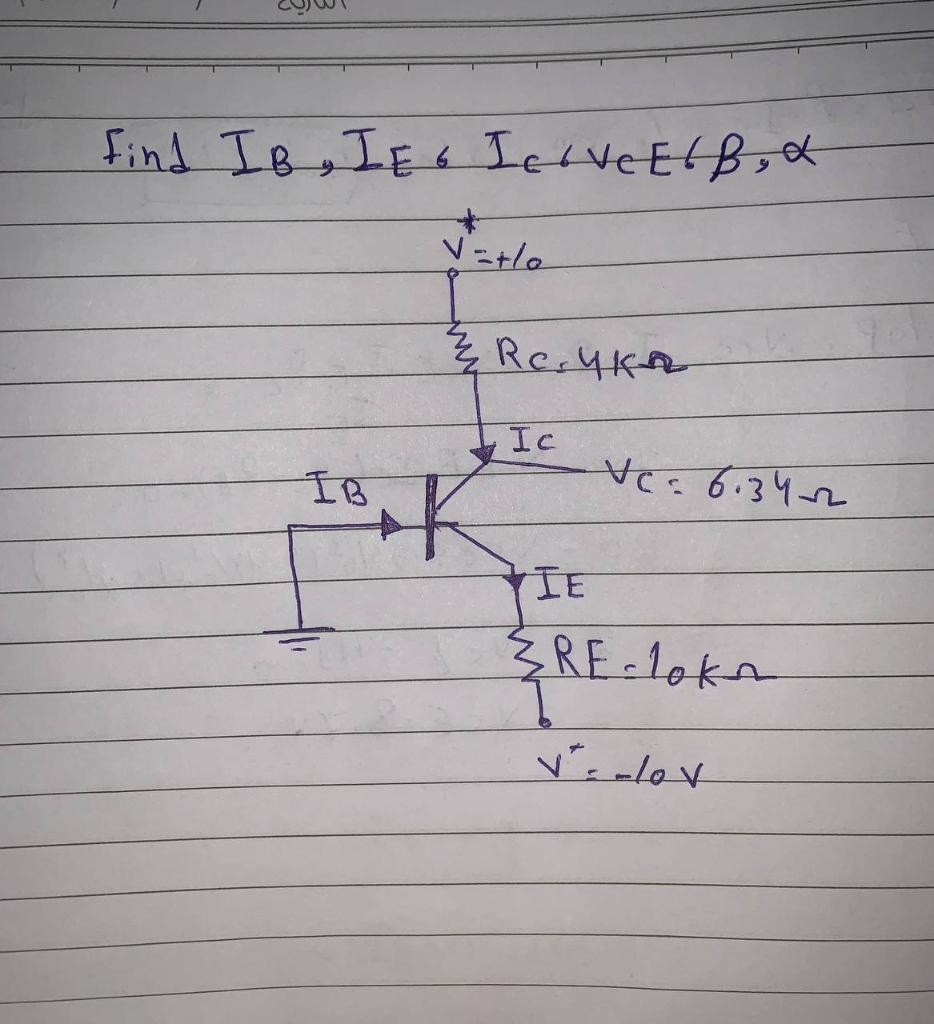 Find IB, IE, IC, VCE, β, α
V⁺=+10
RC=4KΩ
IC
VC=6.34Ω
IB
IE
RE=10KΩ
V⁺=-10V